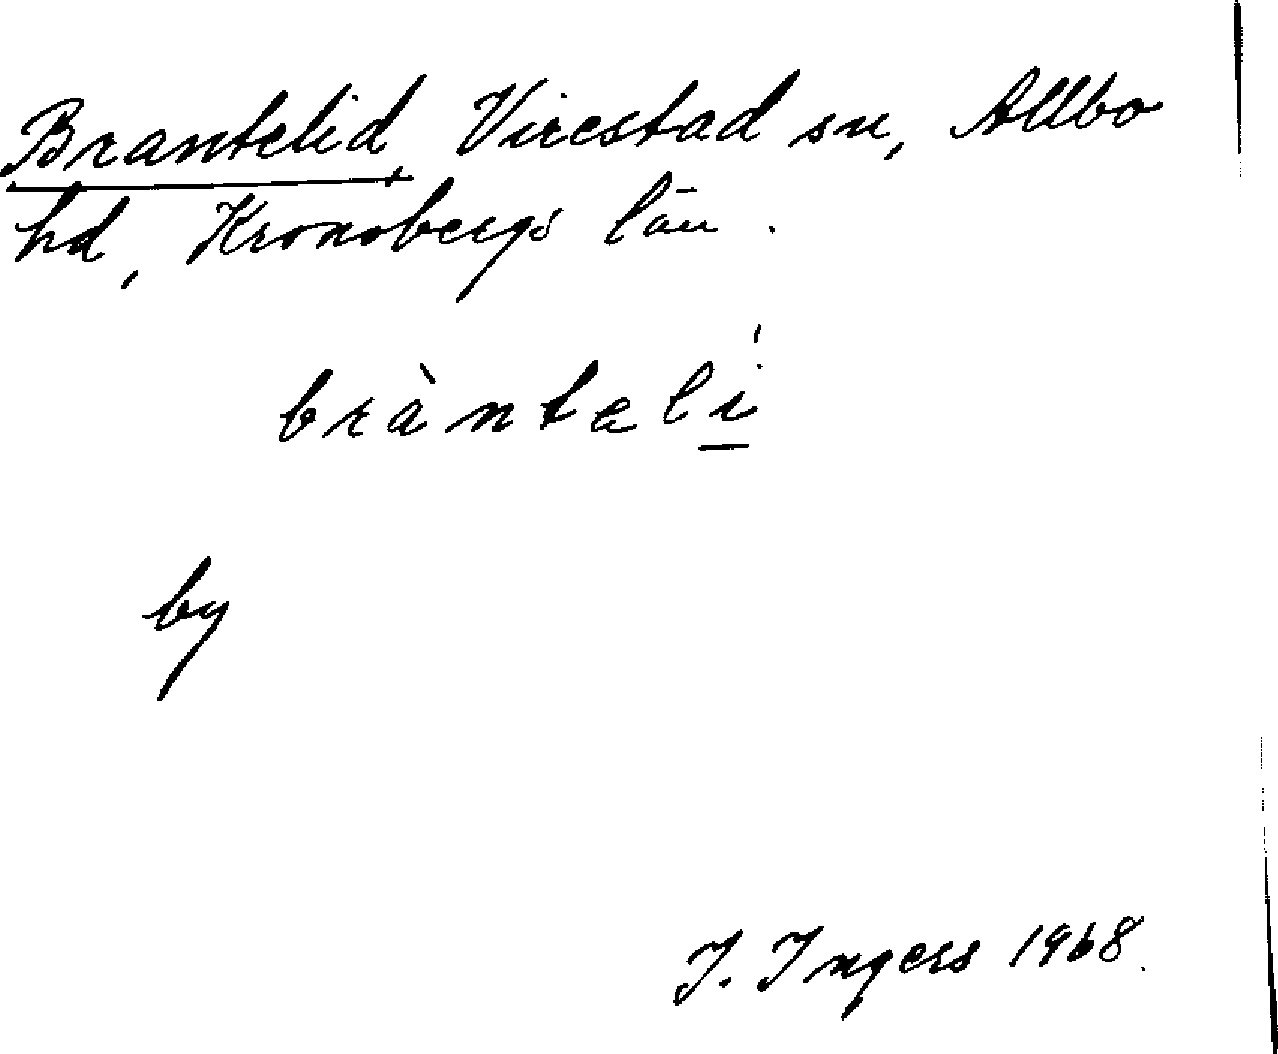 Brantelid, Virestad sn, Allbo
hd, Kronobergs län.
bràntəlí
by
I. Ingers 1968.